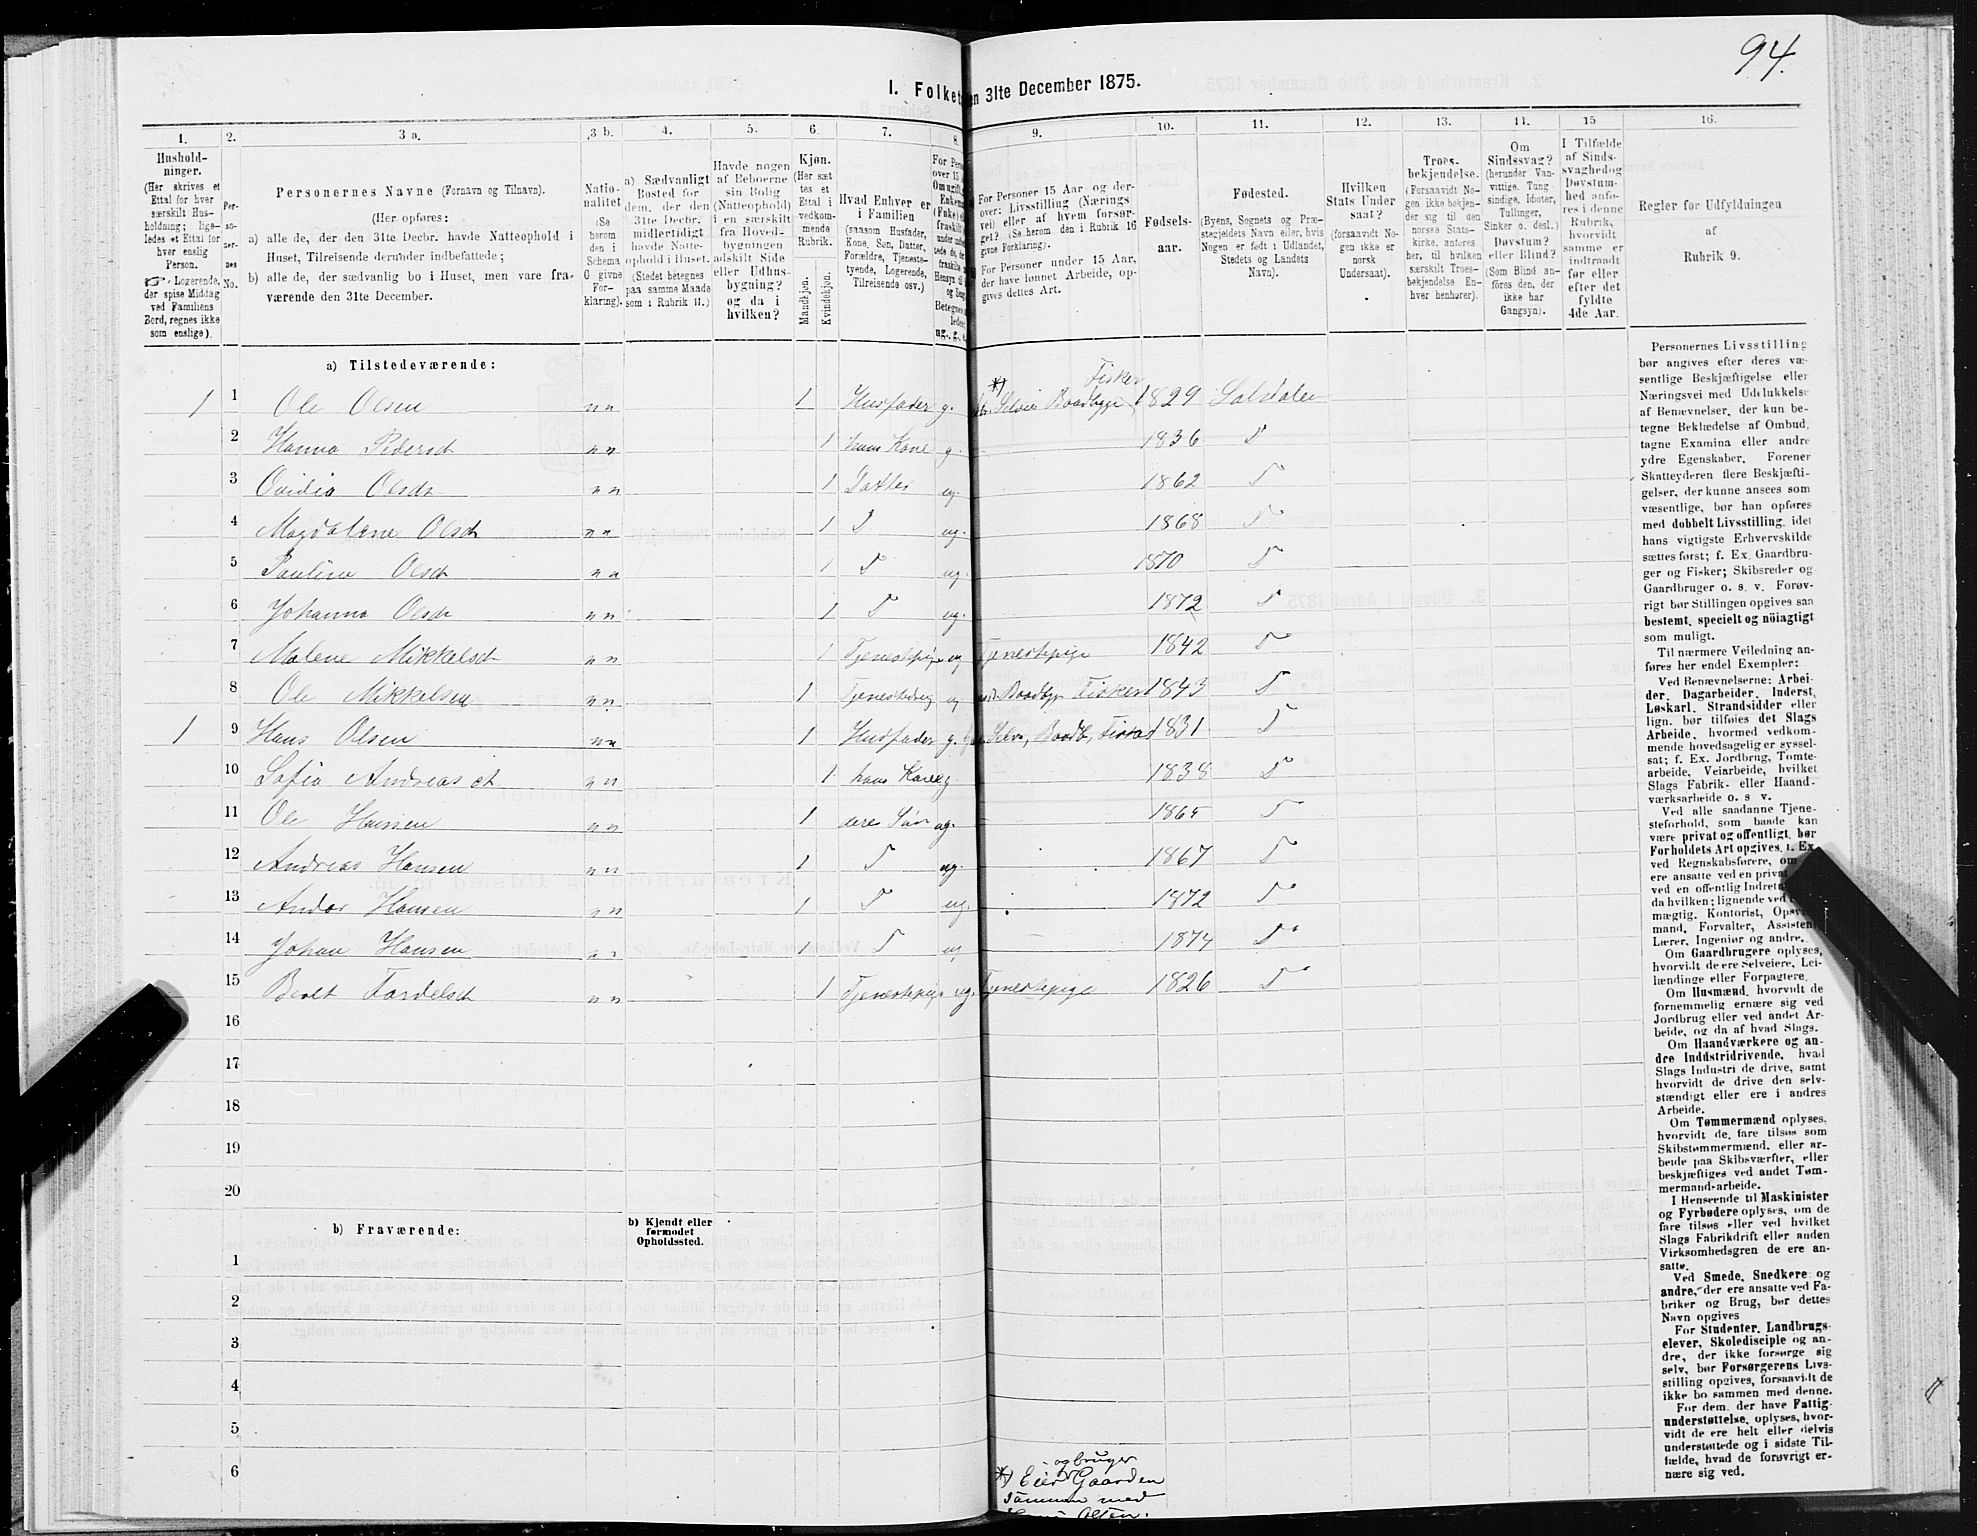 94.
I. Folket en 31te December 1875.
1. 2. 3 a. 3 b. 4. 5. 6. 7. 8. 9. 10. 11. 12. 13. 14. 15 16.
Hushold-
ninger.
(Her skrives et
Ettal for hver
særskilt Hus-
holdning; lige-
ledes et Ettal for
hver enslig
Person.
Logerende,
der spise Middag
ved Familiens
Bord, regnes ikke
som enslige).
Per-
so-
ner-
nes
No.
Personernes Navne (Fornavn og Tilnavn).
(Her opføres:
a) alle de, der den 31te Decbr. havde Natteophold i
Huset, Tilreisende derunder indbefattede;
b) alle de, der sædvanlig bo i Huset, men vare fra-
værende den 31te December.
Natio-
nalitet
(Se
herom
den i
Schema
O givne
For-
klaring).
a) Sædvanligt
Bosted for
dem, der den
31te Decbr.
midlertidigt
havde Natte-
ophold i Huset.
(Stedet betegnes
paa samme Maade
som i Rubrik 11.)
Havde nogen
af Beboerne
sin Bolig
(Natteophold)
i en særskilt
fra Hoved-
bygningen
adskilt Side
eller Udhus-
bygning?
og da i
hvilken?
Kjøn.
(Her sæt
tes et
Ettal i
vedkom-
mende
Rubrik.
Mandkjøn.
Kvindekjøn.
Hvad Enhver er
i Familien
(saasom Husfader,
Kone, Søn, Datter,
Forældre, Tjeneste-
tyende, Logerende,
Tilreisende osv.)
For Personer 15 Aar og der-
over: Livsstilling (Nærings
vei) eller af hvem forsør-
get? (Se herom den i Rubrik 16
givne Forklaring).
For Personer under 15 Aar,
der have lønnet Arbeide, op-
gives dettes Art.
Fødsels-
aar.
Fødested.
(Byens, Sognets og Præ-
stegjeldets Navn eller, hvis
Nogen er født i Udlandet,
Stedets og Landets
Navn).
Hvilken
Stats Under
saat?
(forsaavidt No-
gen ikke er
norsk
Undersaat).
Troes-
bekjendelse.
(Forsaavidt No-
gen ikke bekjen-
der sig til den
norske Stats-
kirke, anføres
her, til hvilken
særskilt Troes-
bekjendelse En-
hver henhører).
Om
Sindssvag?
(herunder Van-
vittige, Tung-
sindige, Idioter,
Tullinger,
Sinker o. desl.)
Døvstum?
eller Blind?
(Som Blind an-
føres den, der
ikke har
Gangsyn).
I Tilfælde
af Sinds-
svaghed og
Døvstum-
hed anfø-
res i denne
Rubrik,
hvorvidt
samme er
indtraadt
før eller
efter det
fyldte
4de Aar.
Regler for Udfyldningen
af
Rubrik 9.
a) Tilstedeværende:
1 1 Ole Olsen nn 1 Husfader g. *) Selveier Boadbygge Fisker 1829 Saltdalen
2 Hanna Pedersd nn 1 hans Kone g. 1836 D
3 Olsdr nn 1 Datter ug. 1862 D
4 Magdalene Olsdr nn 1 D ug. 1868 D
5 Pauline Olsdr nn 1 D ug. 1870 D
6 Johanna Olsdr nn 1 D ug. 1872 D
7 Malene Mikkelsdr nn 1 Tjenestepige ug Tjenestepige 1842 D
8 Ole Mikkelsen nn 1 Tjenestedreng ug Boadbygg Fisker 1843 D
1 9 Hans Olsen nn 1 Husfader g. Selve, Boadb, Fisker 1831 D
10 Sofia Andreasdt nn 1 hans Kone g. 1838 D
11 Ole Hansen nn 1 deres Søn ug. 1865 D
12 Andreas Hansen nn 1 D ug. 1867 D
13 Andor Hansen nn 1 D ug. 1872 D
14 Johan Hansen nn 1 D ug 1874 D
15 Tordelsdr nn 1 Tjenestepige ug. Tjenestepige 1826 D
16
17
18
19
20
b) Fraværende:
b) Kjendt eller
formodet
Opholdssted.
1
2
3
4
5
6
*) Eier og bruger Gaarden
sammen med
Hans Olsen.
Personernes Livsstilling
bør angives efter deres væ-
sentlige Beskjæftigelse eller
Næringsvei med Udelukkelse
af Benævnelser, der kun be-
tegne Beklædelse af Ombud,
tagne Examina eller andre
ydre Egenskaber. Forener
Skatteyderen flere Beskjæfti-
gelser, der kunne ansees som
væsentlige, bør han opføres
med dobbelt Livsstilling, idet
hans vigtigste Erhvervskilde
sættes først; f. Ex. Gaardbru-
ger og Fisker; Skibsreder og
Gaardbruger o. s. v. Forøv-
rigt bør Stillingen opgives saa
bestemt, specielt og nöiagtigt
som muligt.
Til nærmere Veiledning an-
føres her endel Exempler:
Ved Benævnelserne: Arbei-
der, Dagarbeider, Inderst,
Løskarl, Strandsidder eller
lign. bør tilføies det Slags
Arbeide, hvormed vedkom-
mende hovedsagelig er syssel-
sat; f. Ex. Jordbrug, Tomte-
arbeide, Veiarbeide, hvilket
Slags Fabrik- eller Haand-
værksarbeide o. s v.
Ved alle saadanne Tjene-
steforhold, som baade kan
være privat og offentligt, bør
Forholdets Art opgives, f. Ex
ved Regnskabsførere, om
ere ansatte ved en privat
ved en offentlig Indretn
da hvilken; lignende ved
mægtig, Kontorist, Opsy
mand, Forvalter, Assisten
Lærer, Ingeniør og andre.
Om Gaardbrugere oplyses,
hvorvidt de ere Selveiere, Lei-
lændinge eller Forpagtere.
Om Husmænd, hvorvidt de
fornemmelig ernære sig ved
Jordbrug eller ved andet Ar-
beide, og da af hvad Slags.
Om Haandværkere og an-
dre Industridrivende, hvad
Slags Industri de drive, samt
hvorvidt de drive den selv-
stændigt eller ere i andres
Arbeide.
Om Tømmermænd oplyses,
hvorvidt de fare tilsøs som
Skibstømmermænd, eller ar-
beide paa Skibsværfter, eller
beskjæftiges ved andet Tøm-
mermand-arbeide.
I Henseende til Maskinister
og Fyrbødere oplyses, om de
fare tilsøs eller ved hvilket
Slags Fabrikdrift eller anden
Virksomhedsgren de ere an-
satte.
Ved Smede, Snedkere og
andre, der ere ansatte ved Fa-
briker og Brug, bør dettes
Navn opgives
For Studenter, Landbrugs-
elever, Skoledisciple og an-
dre, der ikke forsørge sig
selv, bør Forsørgerens Livs-
stilling opgives, forsaavidt de
ikke bo sammen med denne.
For dem, der have Fattig-
understøttelse, oplyses, hvor-
vidt de ere helt eller delvis
understøttede og i sidste Til-
fælde, hvad de forøvrigt er-
nære sig ved.